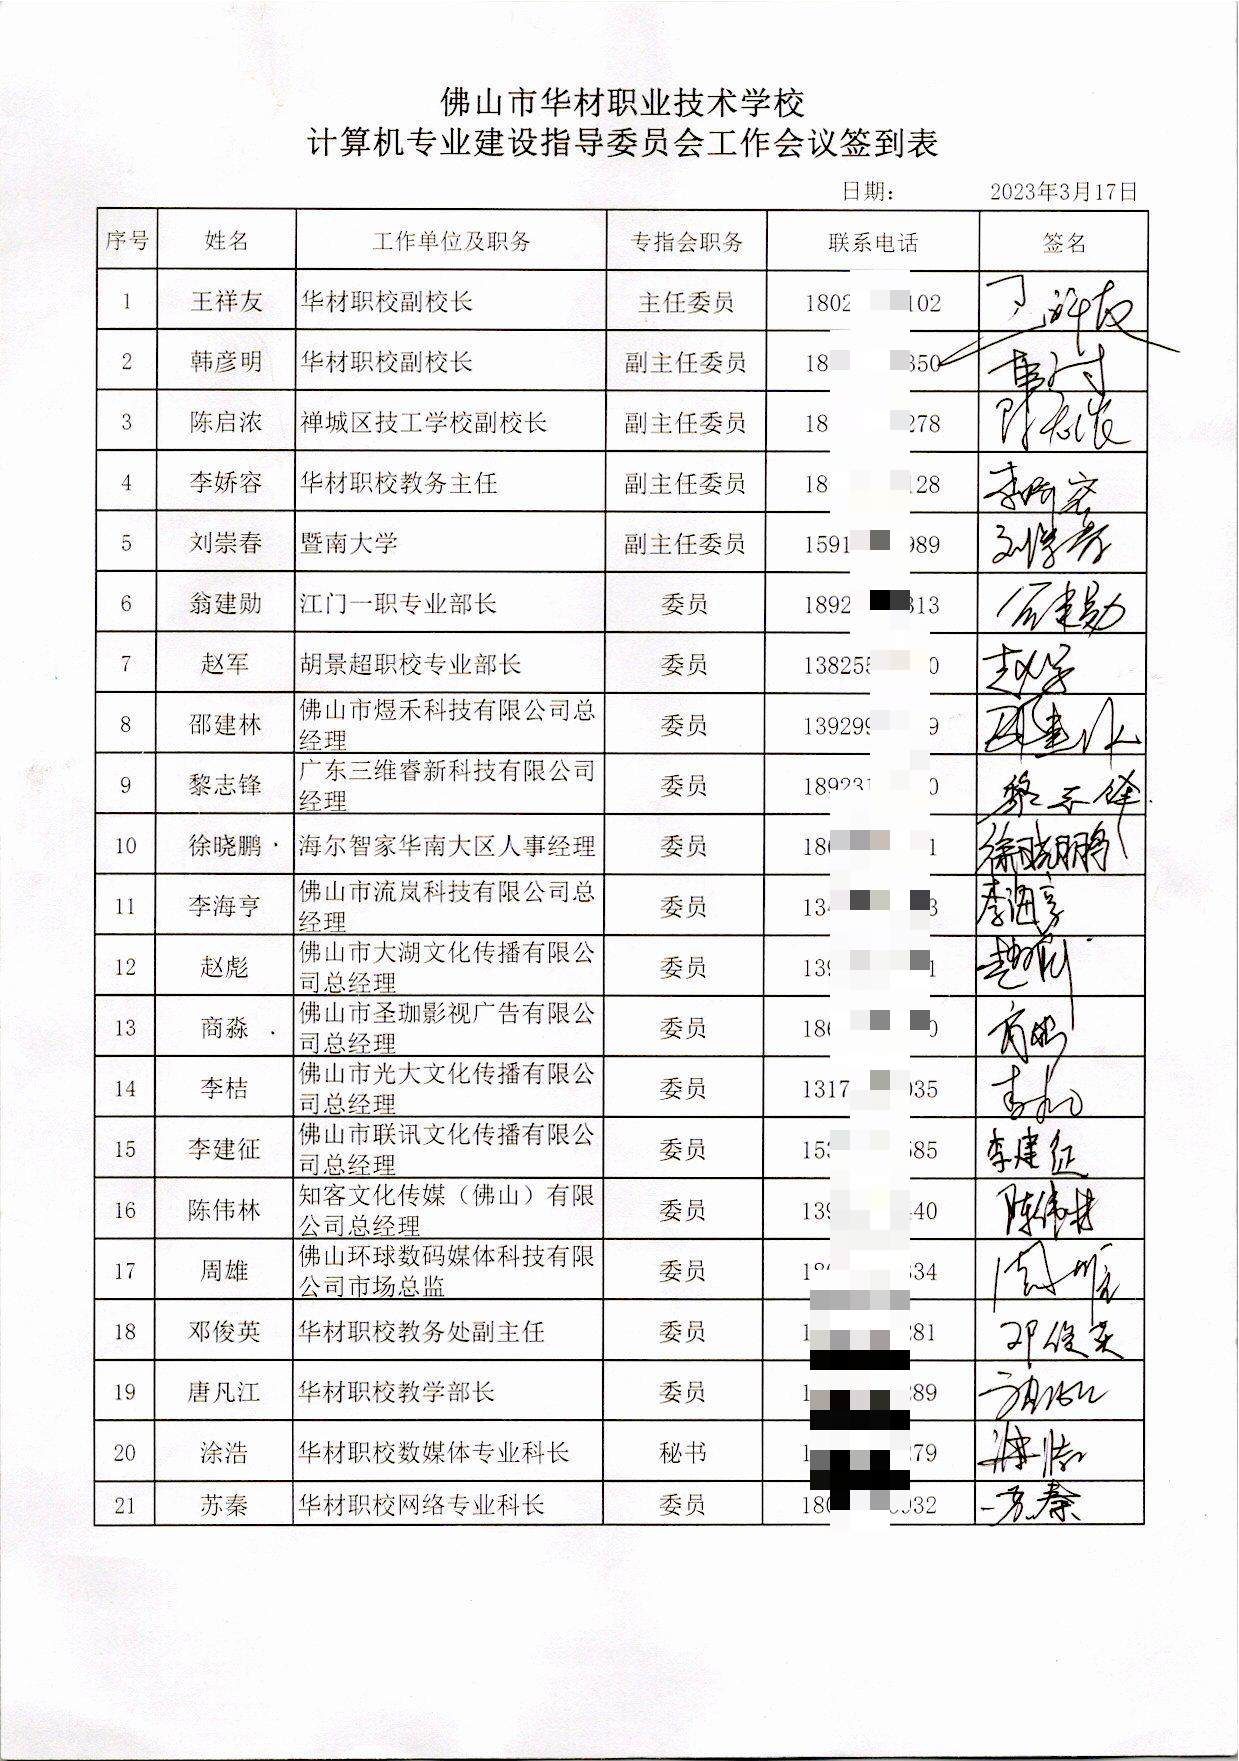 佛山市华材职业技术学校
计算机专业建设指导委员会工作会议签到表
日期： 2023年3月17日
序号 姓名 工作单位及职务 专指会职务 联系电话 签名
1 王祥友 华材职校副校长 主任委员 1802 102 王祥友
2 韩彦明 华材职校副校长 副主任委员 18 350
3 陈启浓 禅城区技工学校副校长 副主任委员 18 278 陈启浓
4 李娇容 华材职校教务主任 副主任委员 18 128 李娇容
5 刘崇春 暨南大学 副主任委员 1591 989 刘崇春
6 翁建勋 江门一职专业部长 委员 1892 313 翁建勋
7 赵军 胡景超职校专业部长 委员 13825 0 赵军
8 邵建林 佛山市煜禾科技有限公司总
经理 委员 139299 9 邵建林
9 黎志锋 广东三维睿新科技有限公司
经理 委员 18923 0 黎志锋
10 徐晓鹏 海尔智家华南大区人事经理 委员 18 1 徐晓鹏
11 李海亨 佛山市流岚科技有限公司总
经理 委员 134 3 李海亨
12 赵彪 佛山市大湖文化传播有限公
司总经理 委员 139 1 赵彪
13 商淼 佛山市圣珈影视广告有限公
司总经理 委员 186 0 商淼
14 李桔 佛山市光大文化传播有限公
司总经理 委员 1317 035 李桔
15 李建征 佛山市联讯文化传播有限公
司总经理 委员 153 585 李建征
16 陈伟林 知客文化传媒（佛山）有限
公司总经理 委员 139 440 陈伟林
17 周雄 佛山环球数码媒体科技有限
公司市场总监 委员 18 334 周雄
18 邓俊英 华材职校教务处副主任 委员 1 281 邓俊英
19 唐凡江 华材职校教学部长 委员 1 289 唐凡江
20 涂浩 华材职校数媒体专业科长 秘书 1 279 涂浩
21 苏秦 华材职校网络专业科长 委员 180 932 苏秦